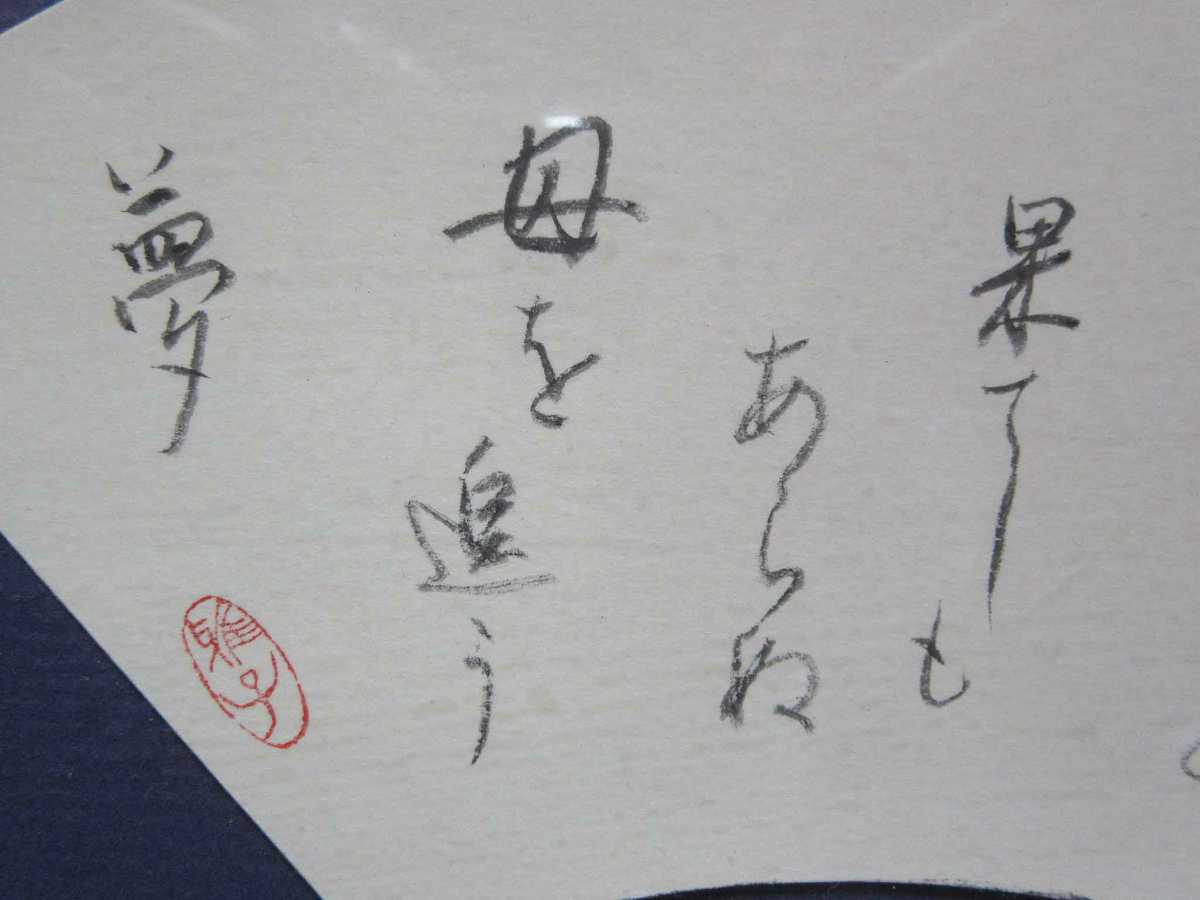 果てしも
あらぬ
母を追う
夢